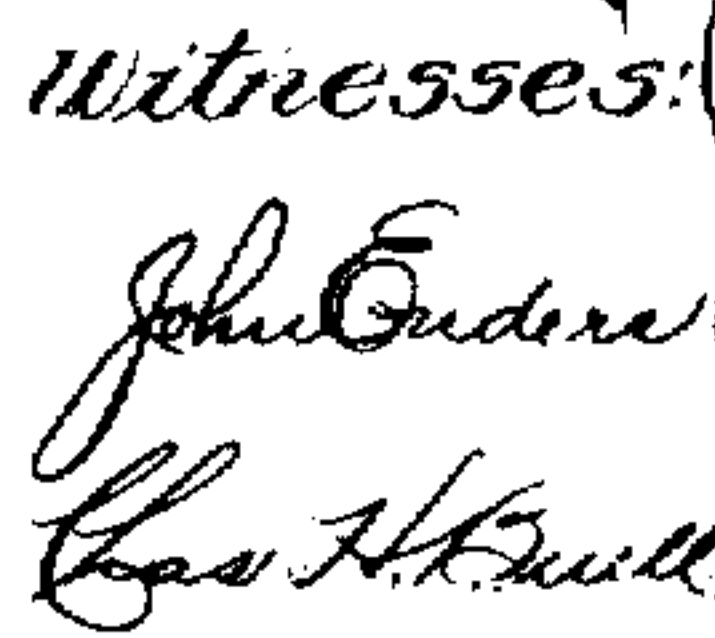 Witnesses:
John Enders
Chas H.